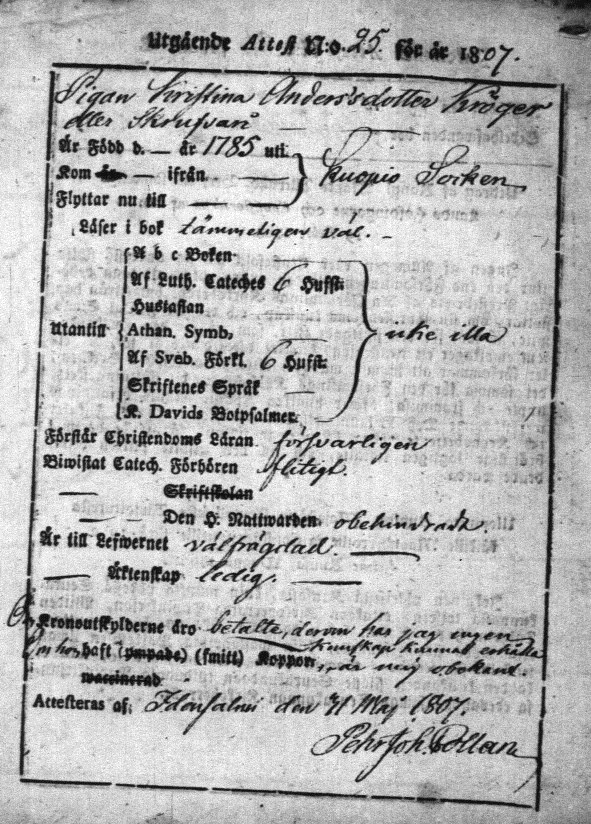 Utgående Attest N:o. 25. för år 1807.
Pigan Christina Andersdotter Kröger
eller Skrufvari
Är Född d. — år 1785 uti
Kom år — ifrån — Kuopio Socken
Flyttar nu till —
Läser i bok tämmeligen väl. —
A b c Boken
Af Luth. Cateches 6 Hufst:
Hustaflan
Utantill Athan. Symb, icke illa
Af Sveb. Förkl. 6 Hufst:
Skriftenes Språk —
K. Davids Botpsalmer.
Förstår Christendoms Läran försvarligen
Biwistat Catech. Förhören flitigt.
— Skriftskolan
— Den H. Nattwarden obehindradt
Är till Lefwernet välfrägdad —
— Äktenskap ledig. —
Om Kronoutskylderne äro betalte, derom har jag ingen
kunskap kunnat erhålla
Om hon haft (ympade) (smitt) Koppor, är mig obekant
waccinerad
Attesteras af; Idensalmi den Maj 1807.
Pehr Joh. Collan